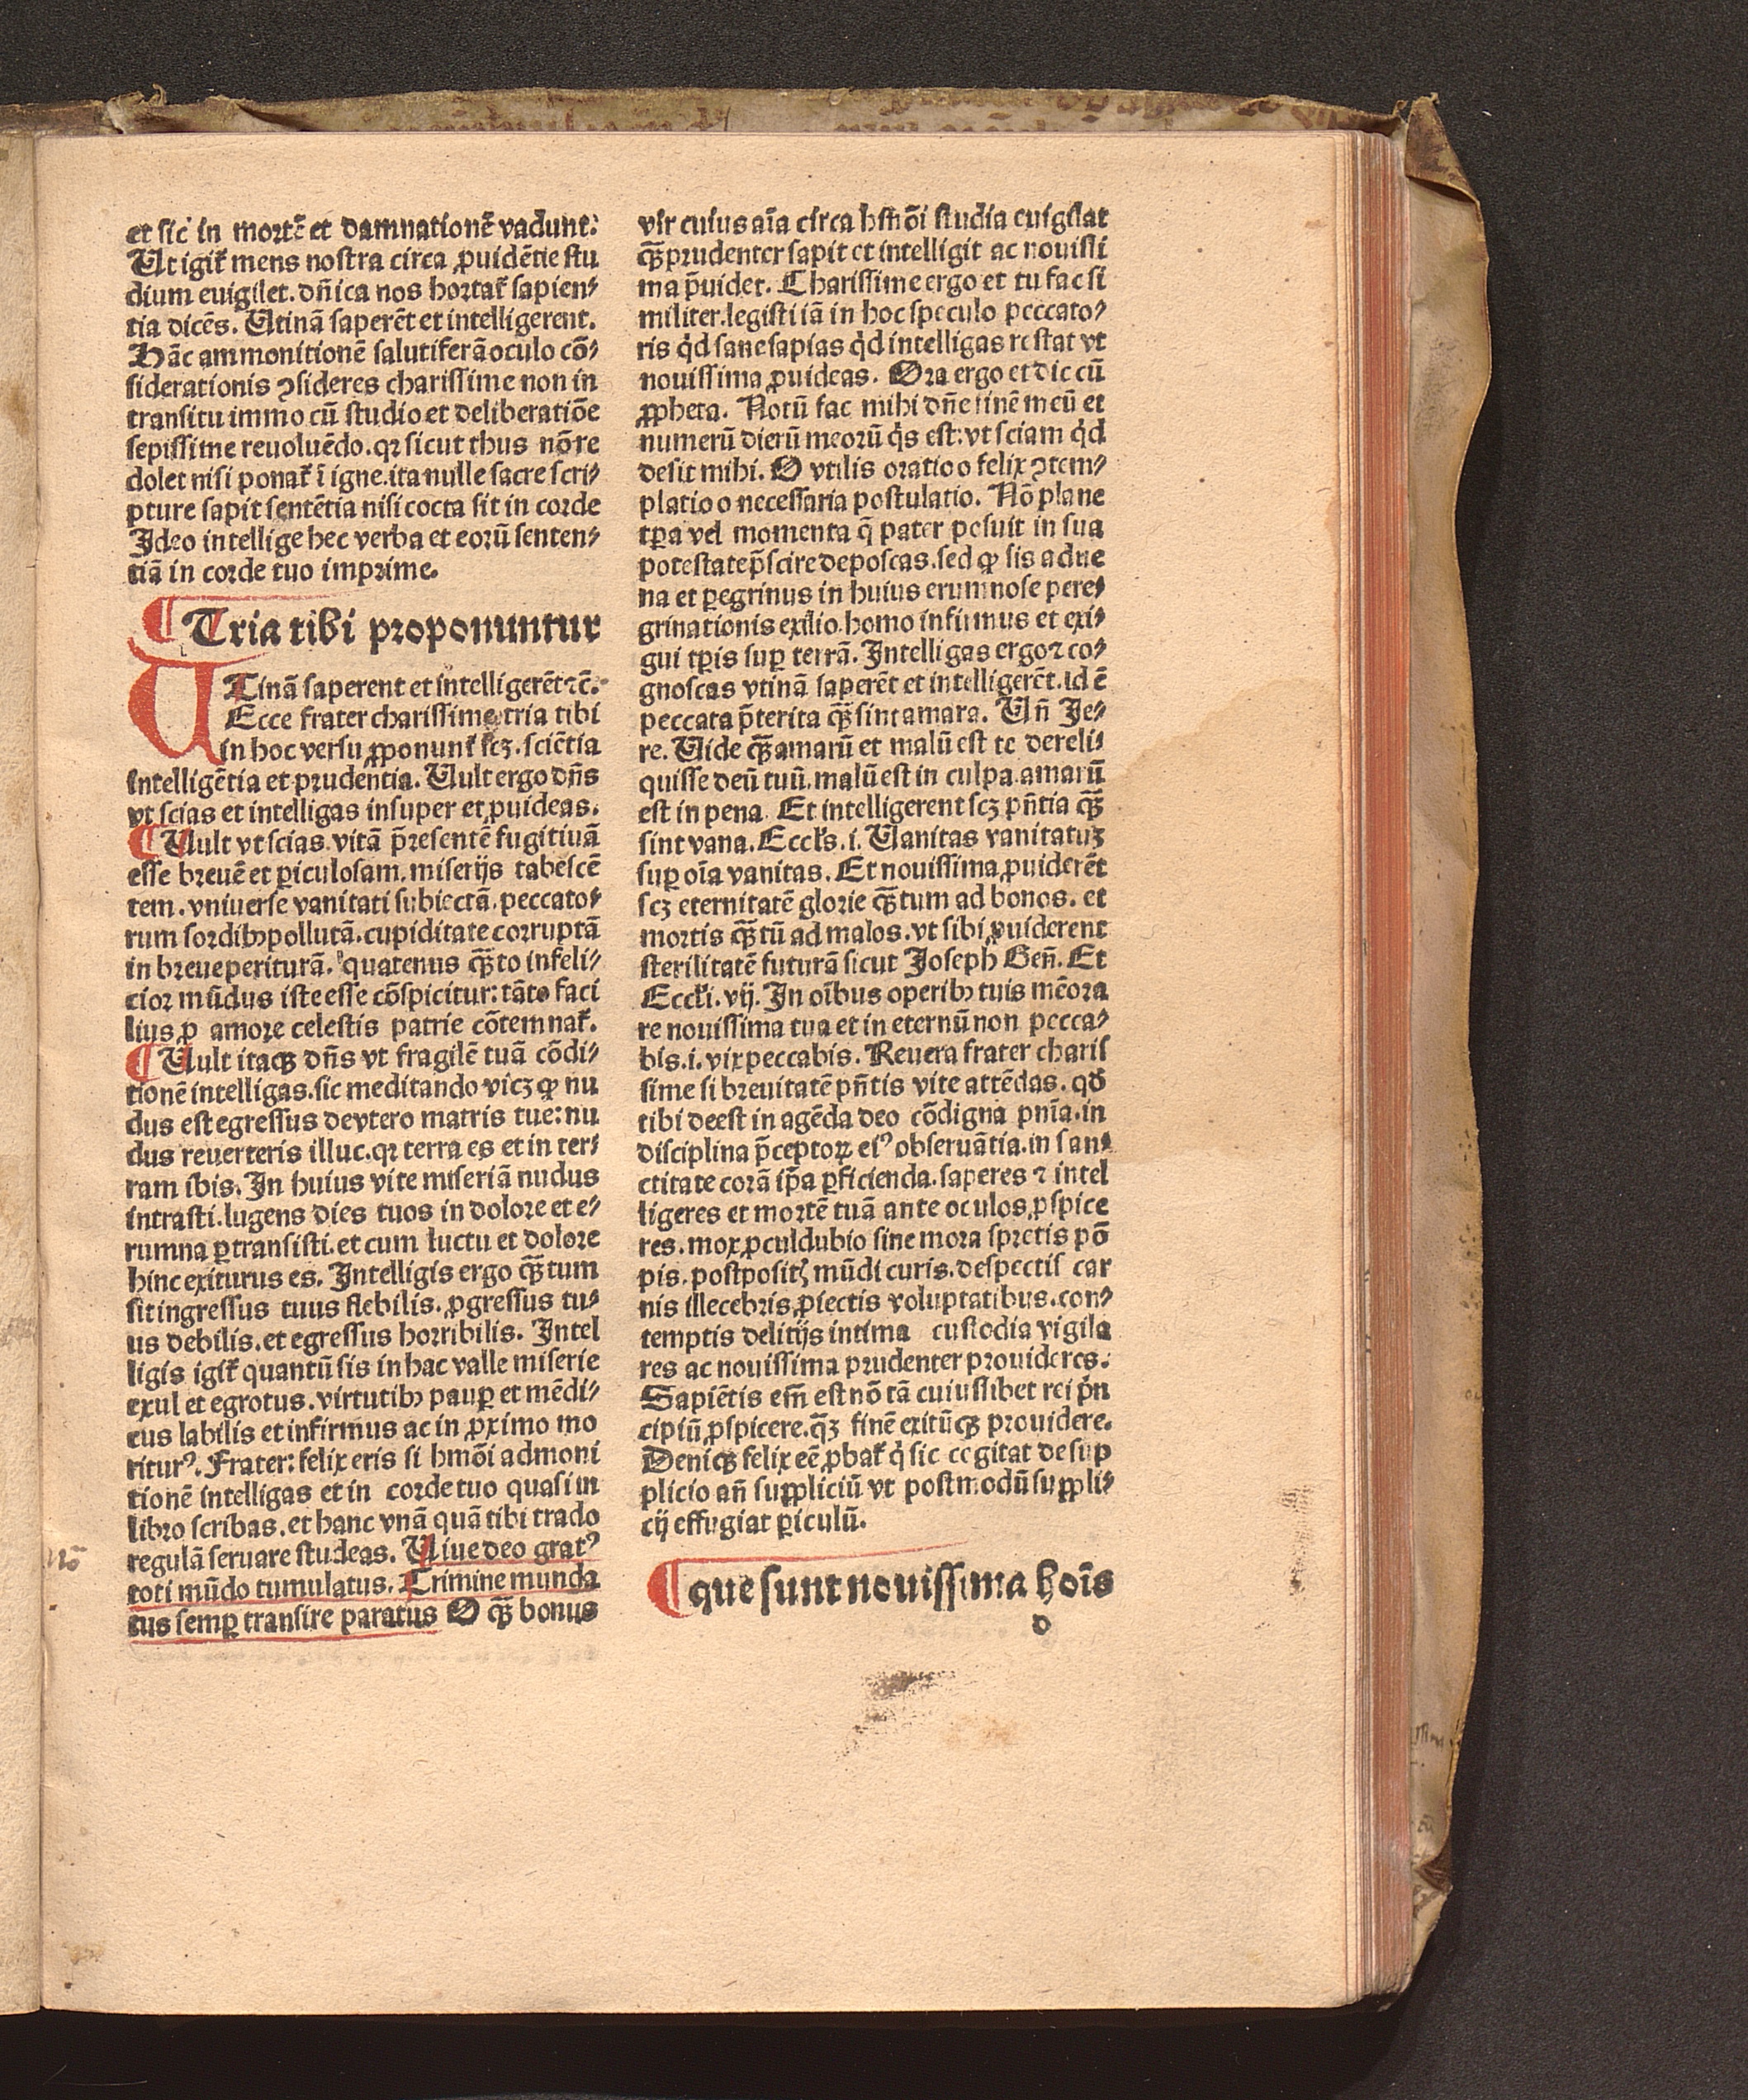 et sic in mortē et damnationē vadunt:
Ut igit᷑ mens nostra circa ꝓuidētie stu
dium euigilet. dn̄ica nos hortat᷑ sapien⸗
tia dicēs. Utinā saperēt et intelligerent.
Hāc ammonitionē salutiferā oculo cō⸗
siderationis ꝯsideres charissime non in
transitu immo cū studio et deliberatiōe
sepissime reuoluēdo. qꝛ sicut thus nō re
dolet nisi ponat᷑ ī igne. ita nulle sacre scri⸗
pture sapit sentētia nisi cocta sit in corde
Ideo intellige hec verba et eorū senten⸗
tiā in corde tuo imprime.
¶ Tria tibi proponuntur
UTinā saperent et intelligerēt ⁊c̄.
Ecce frater charissime tria tibi
in hoc versu ꝓponunt᷑ scꝫ. sciētia
intelligētia et prudentia. Uult ergo dn̄s
vt scias et intelligas insuper et ꝓuideas.
¶ Uult vt scias vitā p̄resentē fugitiuā
esse breuē et ꝑiculosam. miserijs tabescē
tem. vniuerse vanitati subiectā. peccato⸗
rum sordibꝫ pollutā. cupiditate corruptā
in breue periturā. quatenus qꝫ̄to infeli⸗
cior mūdus iste esse cōspicitur: tāto faci
lius ꝓ amore celestis patrie cōtemnat᷑.
¶ Uult itaqꝫ dn̄s vt fragilē tuā cōdi⸗
tionē intelligas. sic meditando vicꝫ ꝙ nu
dus est egressus de vtero matris tue: nu
dus reuerteris illuc. qꝛ terra es et in ter⸗
ram ibis. In huius vite miseriā nudus
intrasti. lugens dies tuos in dolore et e⸗
rumna ꝑtransisti. et cum luctu et dolore
hinc exiturus es. Intelligis ergo qꝫ̄tum
sit ingressus tuus flebilis. ꝓgressus tu⸗
us debilis. et egressus horribilis. Intel
ligis igit᷑ quantū sis in hac valle miserie
exul et egrotus. virtutibꝫ pauꝑ et mēdi⸗
cus labilis et infirmus ac in ꝓximo mo
riturꝰ. Frater: felix eris si hmōi admoni
tionē intelligas et in corde tuo quasi in
libro scribas. et hanc vnā quā tibi trado
regulā seruare studeas. Uiue deo gratꝰ
toti mūdo tumulatus. Crimine munda
tus semꝑ transire paratus O qꝫ̄ bonus
vir cuius aīa circa hmōi studia euigilat
qꝫ̄ prudenter sapit et intelligit ac nouissi
ma p̄uidet. Charissime ergo et tu fac si
militer. legisti iā in hoc speculo peccato⸗
ris qd̓ sane sapias qd̓ intelligas restat vt
nouissima ꝓuideas. Ora ergo et dic cū
ꝓpheta. Notū fac mihi dn̄e finē meū et
numerū dierū meorū q̇s est: vt sciam qd̓
desit mihi. O vtilis oratio o felix ꝯtem⸗
platio o necessaria postulatio. Nō plane
tꝑa vel momenta q̄ pater posuit in sua
potestate p̄scire deposcas. sed ꝙ sis adue
na et ꝑegrinus in huius erumnose pere⸗
grinationis exilio homo infirmus et exi⸗
gui tꝑis suꝑ terrā. Intelligas ergo ⁊ co⸗
gnoscas vtinā saperēt et intelligerēt. id ē
peccata p̄terita qꝫ̄ sint amara. Un̄ Je⸗
re. Uide qꝫ̄ amarū et malū est te dereli⸗
quisse deū tuū. malū est in culpa. amarū
est in pena. Et intelligerent scꝫ pn̄tia qꝫ̄
sint vana. Eccls̄. i. Uanitas vanitatuꝫ
suꝑ oīa vanitas. Et nouissima ꝓuiderēt
scꝫ eternitatē glorie qꝫ̄tum ad bonos. et
mortis qꝫ̄tū ad malos. vt sibi ꝓuiderent
sterilitatē futurā sicut Joseph Gen̄. Et
Eccl̄i. vij. In oībus operibꝫ tuis mēora
re nouissima tua et in eternū non pecca⸗
bis. i. vix peccabis. Reuera frater charis
sime si breuitatē pn̄tis vite attēdas. qd̓
tibi deest in agēda deo cōdigna pn̄ia. in
disciplina p̄ceptoꝝ eiꝰ obseruātia. in san⸗
ctitate corā ip̄a ꝑficienda. saperes ⁊ intel
ligeres et mortē tuā ante oculos ꝓspice
res. mox ꝓculdubio sine mora spretis pō
pis. postposit᷒ mūdi curis. despectis car
nis illecebris ꝓiectis voluptatibus. con⸗
temptis delitijs intima custodia vigila
res ac nouissima prudenter prouideres.
Sapiētis em̄ est nō tā cuiuslibet rei pr̄in
cipiū ꝓspicere. qꝫ̄ finē exitūqꝫ prouidere.
Deniqꝫ felix eē ꝓbat᷑ q̇ sic cogitat de sup
plicio an̄ suppliciū vt postmodū suppli⸗
cij effugiat ꝑiculū.
¶ que sunt nouissima hoīs
d